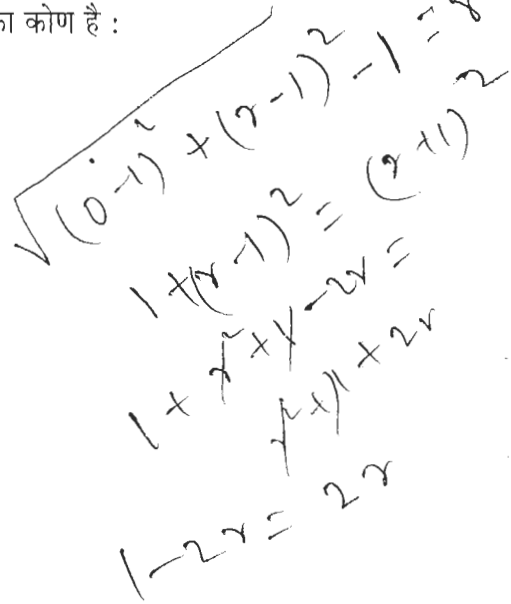 का कोण है :
√(0-1)² + (r-1)² - 1 = r
1 + (r-1)² = (r+1)²
1 + r² + 1 - 2r =
r² + 1 + 2r
1 - 2r = 2r